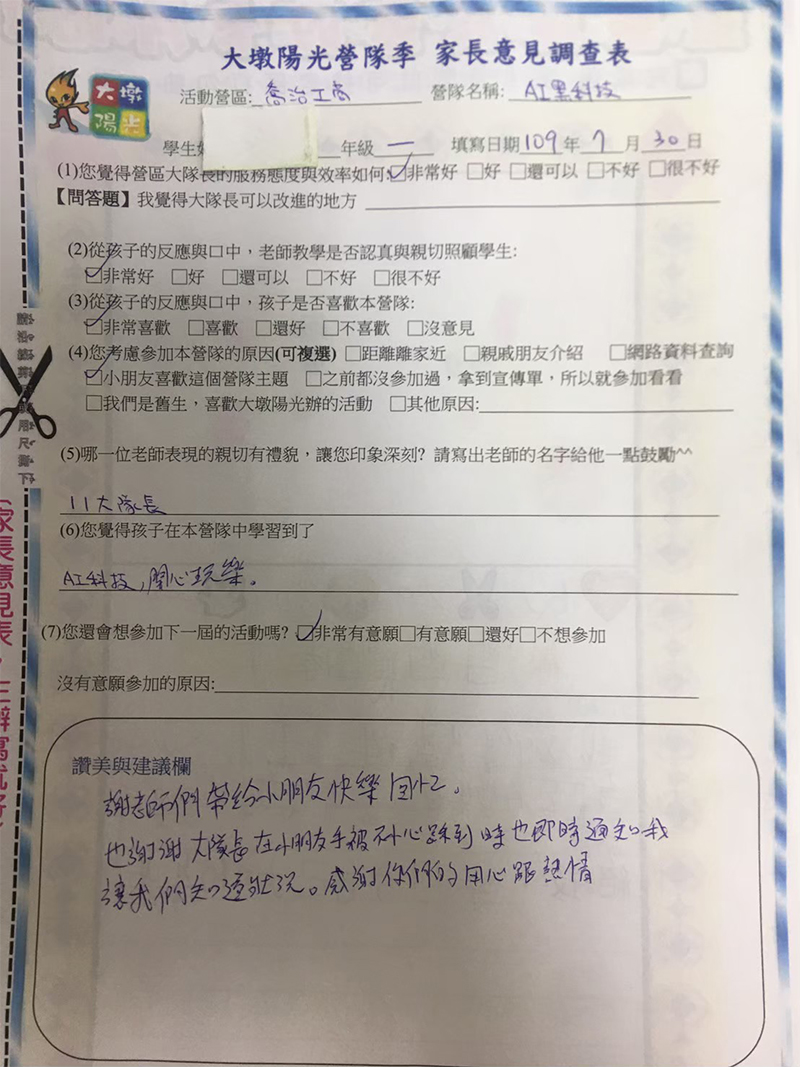 大墩陽光營隊季 家長意見調查表
大墩
陽光
活動營區: 喬治工商 營隊名稱: AI黑科技
學生姓 年級 一 填寫日期109年7月30日
(1)您覺得營區大隊長的服務態度與效率如何:☑非常好 □好 □還可以 □不好 □很不好
【問答題】我覺得大隊長可以改進的地方
(2)從孩子的反應與口中，老師教學是否認真與親切照顧學生:
☑非常好 □好 □還可以 □不好 □很不好
(3)從孩子的反應與口中，孩子是否喜歡本營隊:
☑非常喜歡 □喜歡 □還好 □不喜歡 □沒意見
(4)您考慮參加本營隊的原因(可複選) □距離離家近 □親戚朋友介紹 □網路資料查詢
☑小朋友喜歡這個營隊主題 □之前都沒參加過，拿到宣傳單，所以就參加看看
□我們是舊生，喜歡大墩陽光辦的活動 □其他原因:
(5)哪一位老師表現的親切有禮貌，讓您印象深刻? 請寫出老師的名字給他一點鼓勵^^
11大隊長
(6)您覺得孩子在本營隊中學習到了
AI科技,開心玩樂。
(7)您還會想參加下一屆的活動嗎? ☑非常有意願□有意願□還好□不想參加
沒有意願參加的原因:
讚美與建議欄
謝老師們帶給小朋友快樂回忆。
也謝謝大隊長在小朋友手被不小心踩到時也即時通知我
讓我們知道狀況。感謝你們的用心跟熱情
(家長意見表，